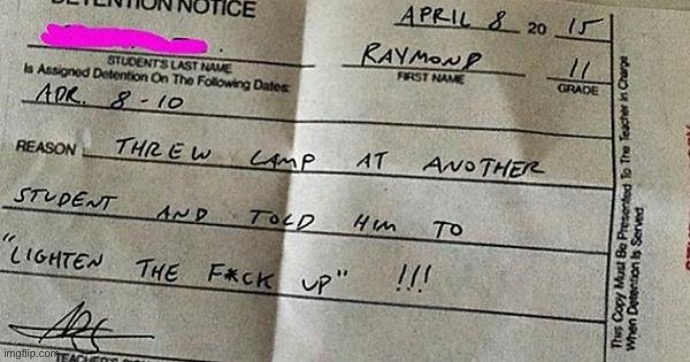 DETENTION NOTICE
APRIL 8 20 15
STUDENT'S LAST NAME
RAYMOND 11
FIRST NAME GRADE
Is Assigned Detention On The Following Dates:
APR. 8-10
REASON THREW LAMP AT ANOTHER
STUDENT AND TOLD HIM TO
"LIGHTEN THE F*CK UP" !!!
TEACHER'S
This Copy Must Be Presented To The Teacher In Charge
When Detention Is Served
imgflip.com